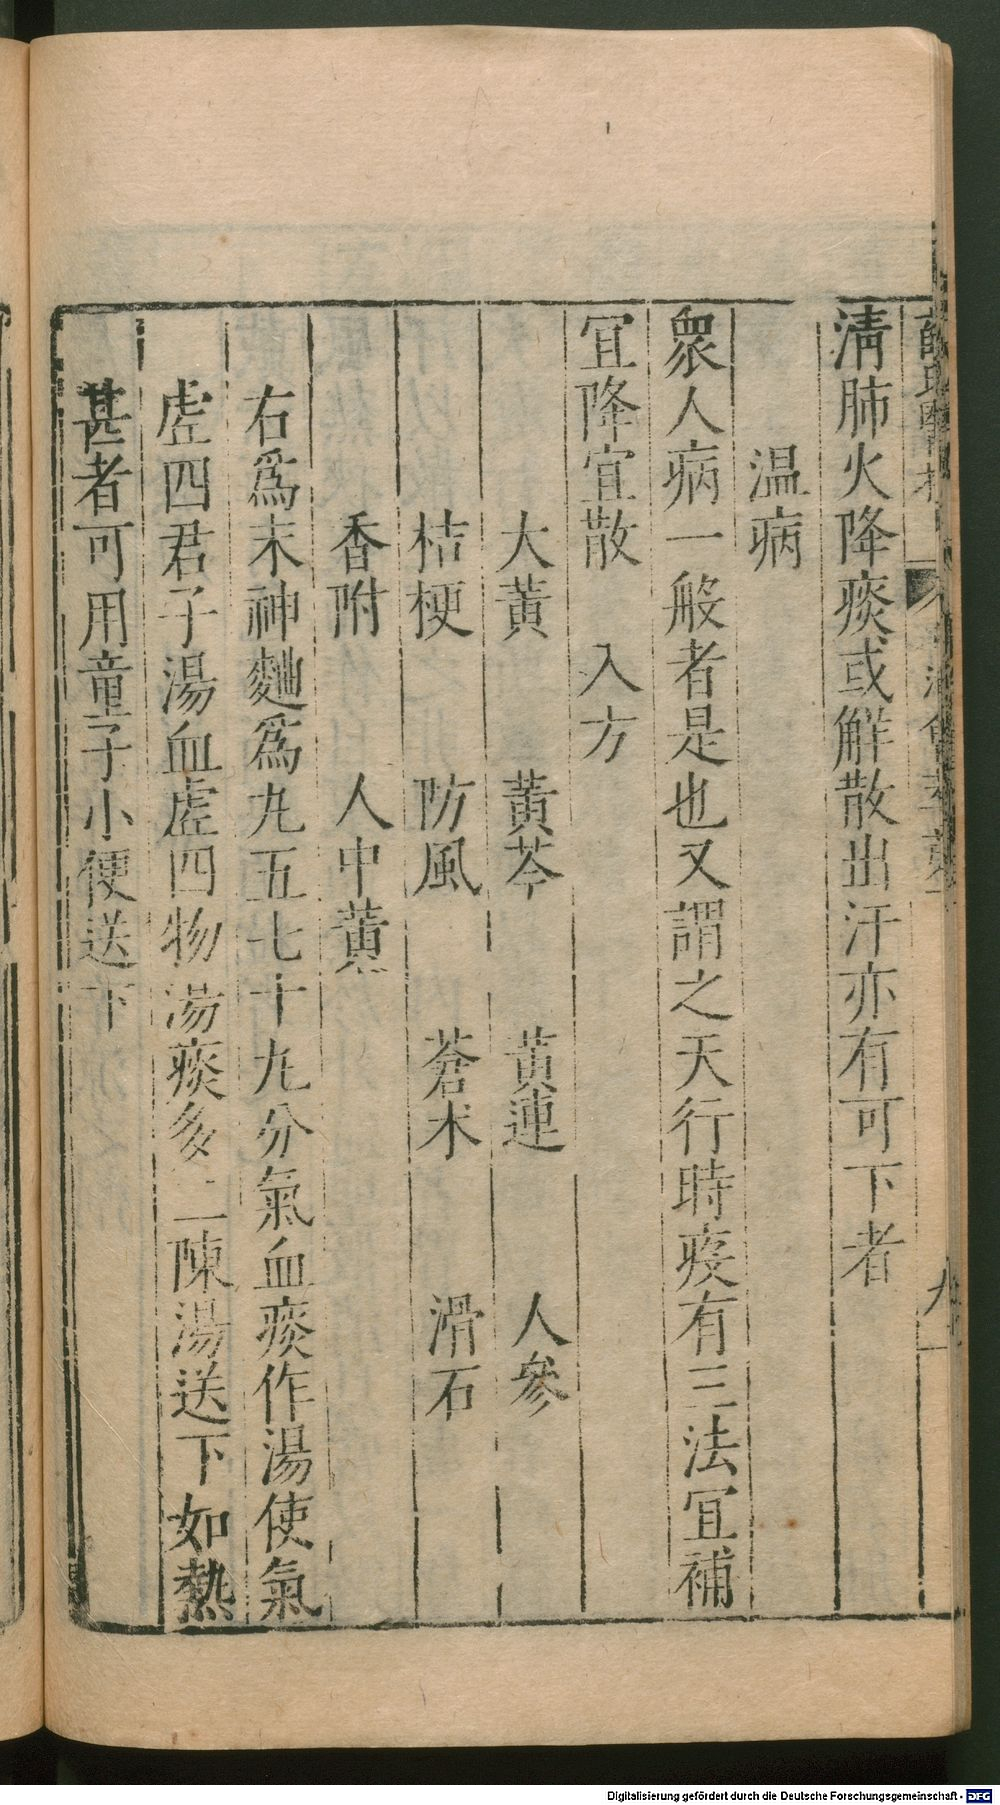 清肺火降痰或解散出汗亦有可下者
温病
衆人病一般者是也又謂之天行時疫有三法宜補
宜降宜散　入方
大黄　黄芩　黄連　人參
桔梗　防風　蒼朮　滑石
香附　人中黄
右爲末神麯爲丸五七十丸分氣血痰作湯使氣
虛四君子湯血虛四物湯痰多二陳湯送下如熱
甚者可用童子小便送下
Digitalisierung gefördert durch die Deutsche Forschungsgemeinschaft - DFG